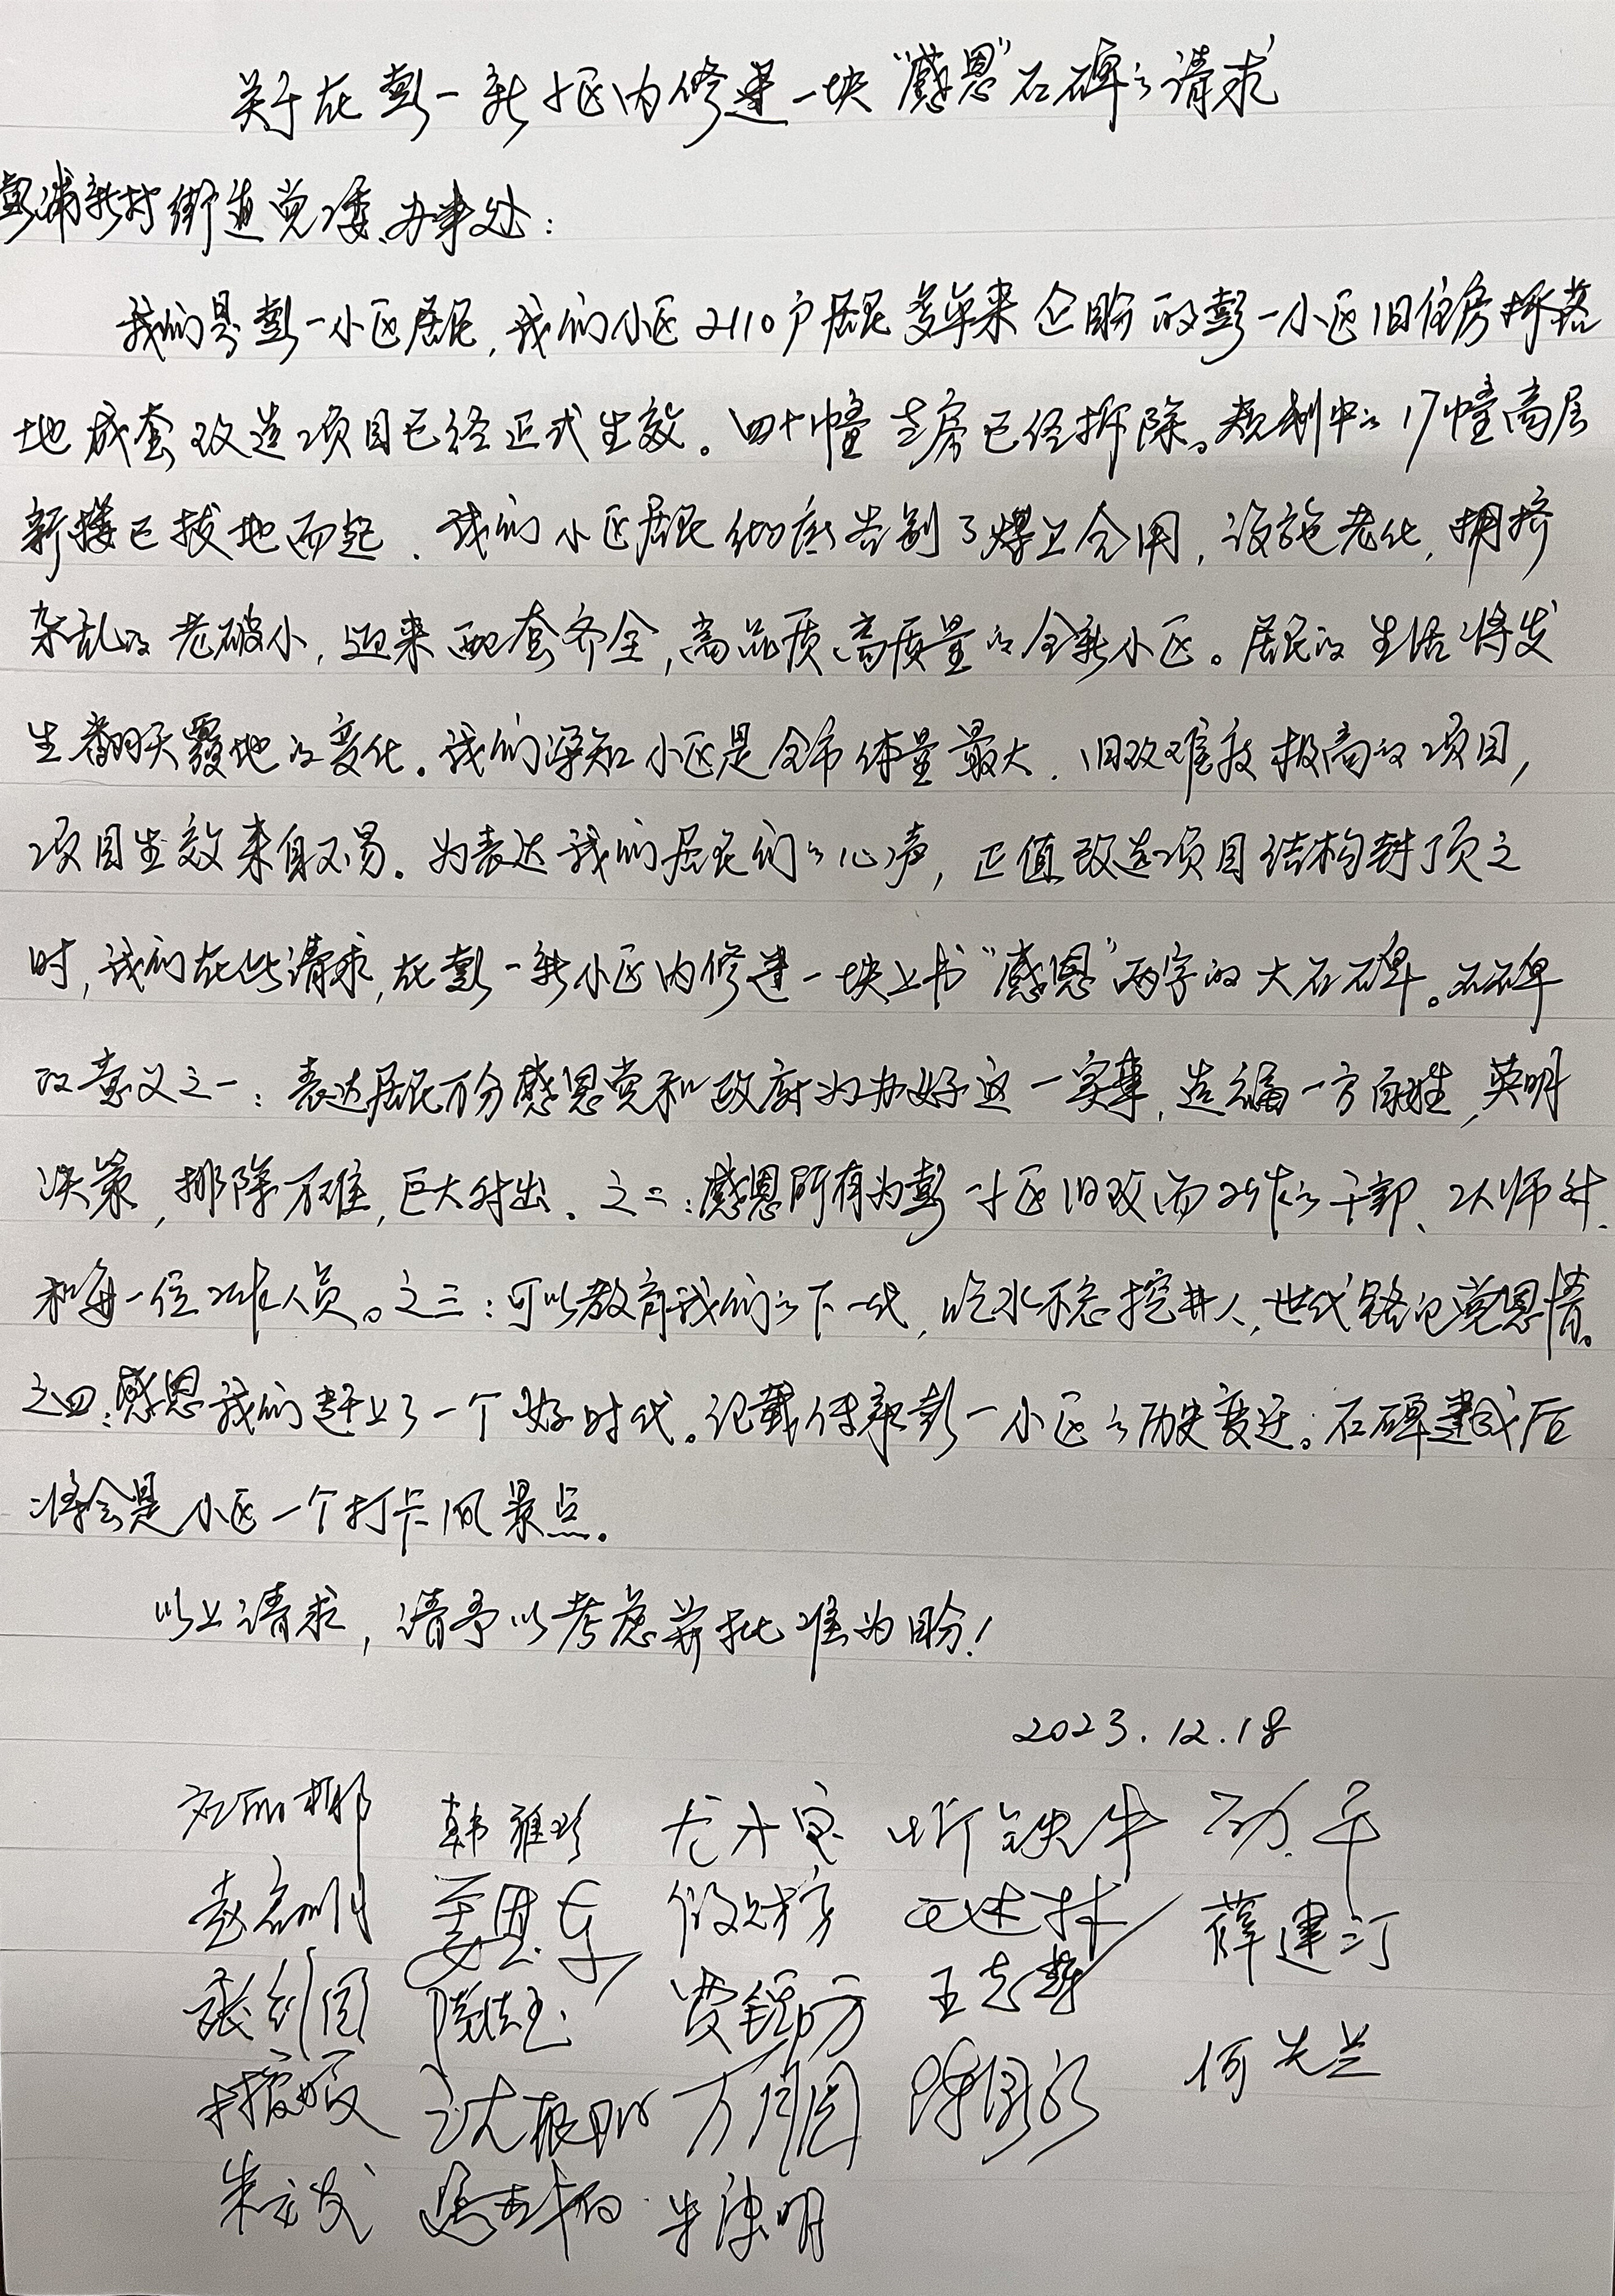 关于在彭一新小区内修建一块“感恩”石碑的请求
彭浦新村街道党工委、办事处：
我们是彭一小区居民，我们小区2110户居民多年来企盼的彭一小区旧住房拆落
地成套改造项目已经正式生效。四十幢老房已经拆除。规划中的17幢高层
新楼已拔地而起。我们小区居民彻底告别了煤卫合用，设施老化，拥挤
杂乱的老破小，迎来配套齐全，高品质高质量的全新小区。居民的生活将发
生翻天覆地的变化。我们深知小区是全市体量最大、旧改难度极高的项目，
项目生效来自不易。为表达我们居民们的心声，正值改造项目结构封顶之
时，我们在此请求，在彭一新小区内修建一块上书“感恩”两字的大石碑。石碑
的意义之一：表达居民万分感恩党和政府为办好这一实事，造福一方百姓，英明
决策，排除万难，巨大付出。之二：感恩所有为彭一小区旧改而工作的干部、工人师付、
和每一位工作人员。之三：可以教育我们的下一代，吃水不忘挖井人，世代铭记党恩情。
之四：感恩我们赶上了一个好时代。记载传承彭一小区的历史变迁。石碑建成后
将会是小区一个打卡风景点。
以上请求，请予以考虑并批准为盼！
2023.12.18
韩雅珍
薛建汀
王志琴
万月园
何先兰
朱德明